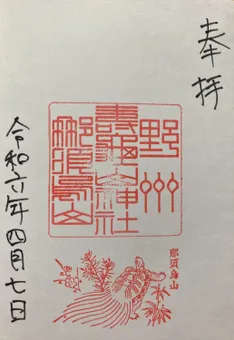 奉拝
野州
壽龜山神社
那須烏山
那須烏山
令和六年四月七日